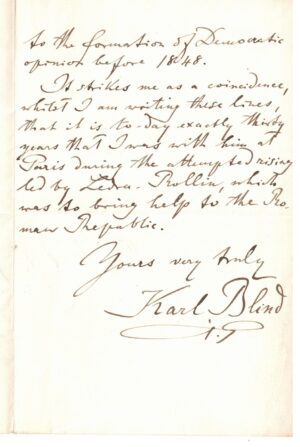 to the formation of Democratic
opinion before 1848.
It strikes me as a coincidence,
whilst I am writing these lines,
that it is to-day exactly thirty
years that I was with him at
Paris during the attempted rising
led by Ledru-Rollin, which
was to bring help to the Ro-
man Republic.
Yours very truly
Karl Blind